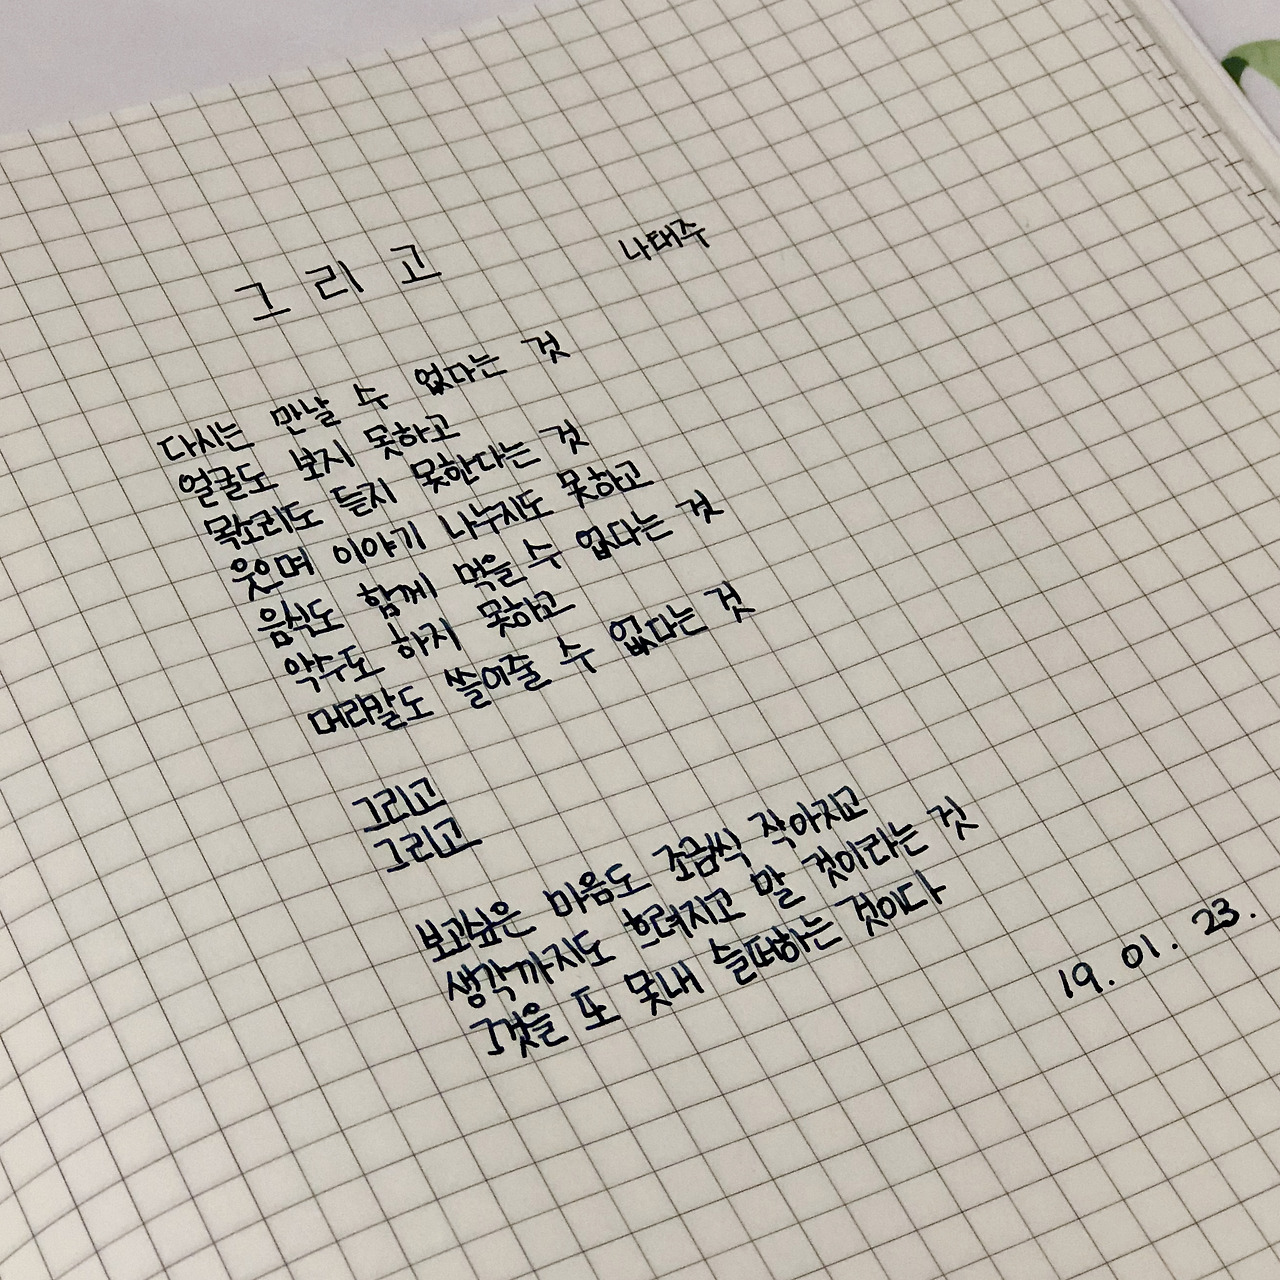 그리고
나태주
다시는 만날 수 없다는 것
얼굴도 보지 못하고
목소리도 듣지 못한다는 것
웃으며 이야기 나누지도 못하고
음식도 함께 먹을 수 없다는 것
악수도 하지 못하고
머리칼도 쓸어줄 수 없다는 것
그리고
그리고
보고싶은 마음도 조금씩 작아지고
생각까지도 흐려지고 말 것이라는 것
그것을 또 못내 슬퍼하는 것이다
19. 01. 23.